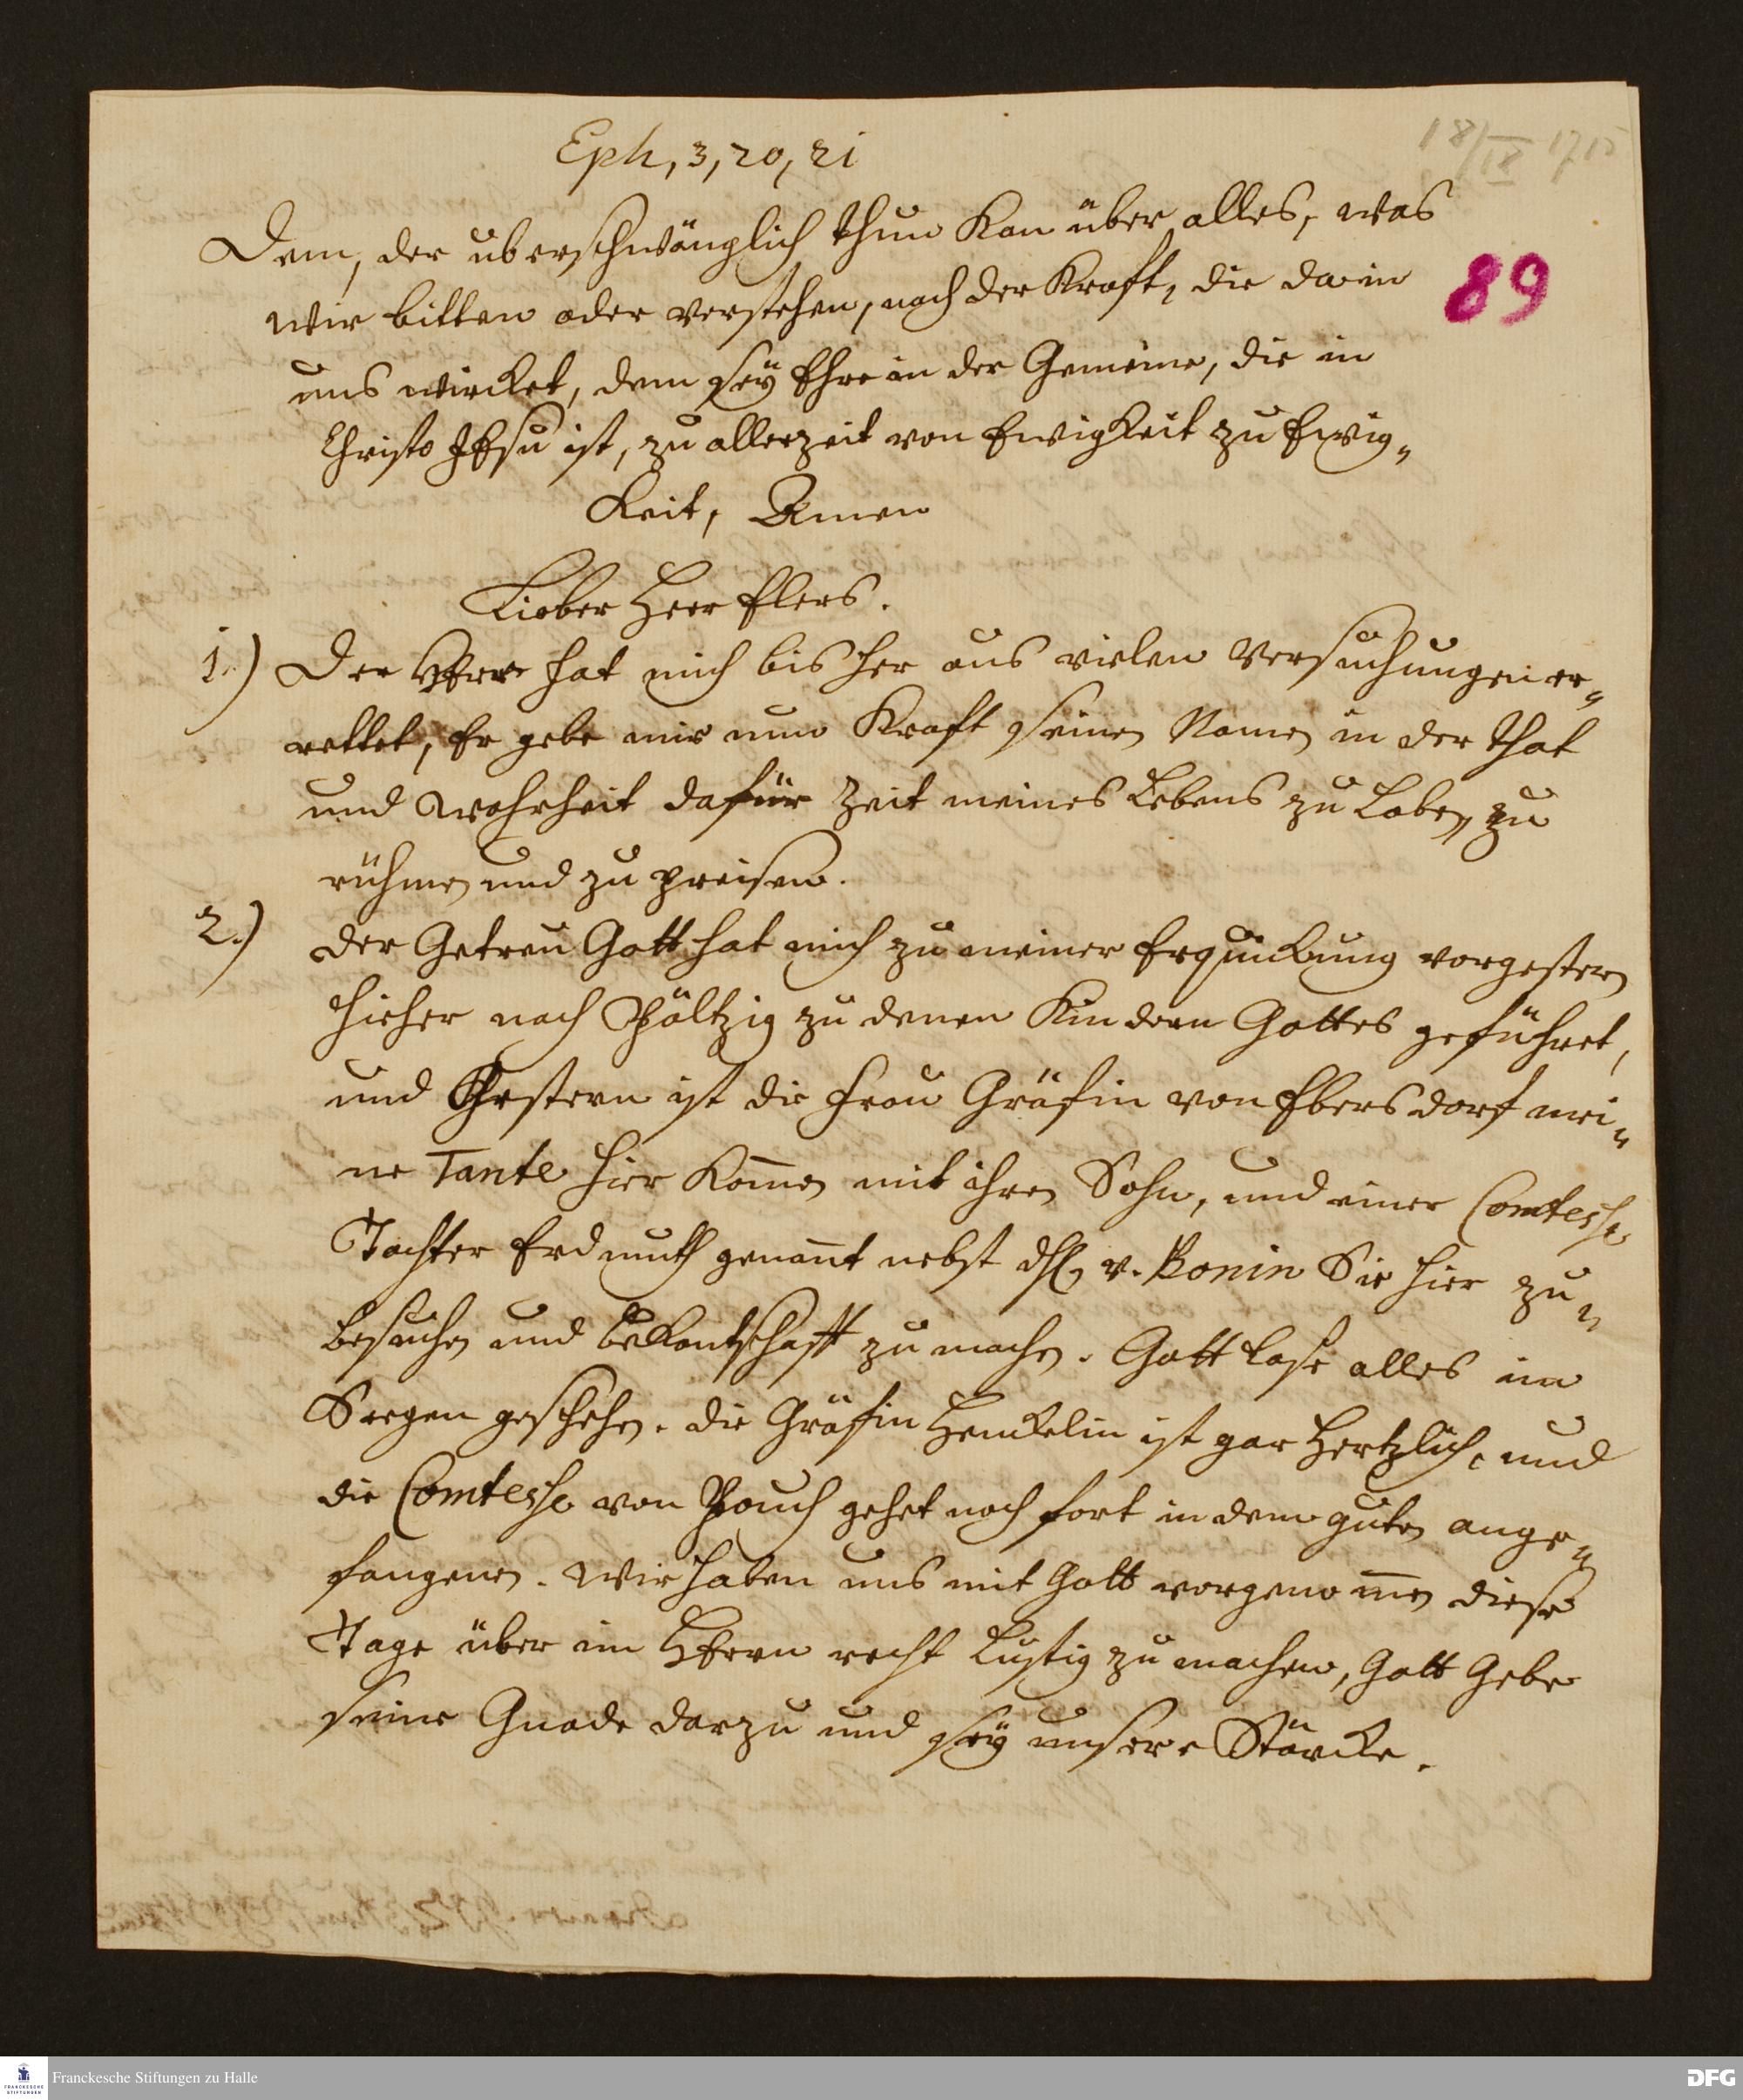 Eph, 3, 20, 21
18/IX 1715
Dem, der uberschwänglich thun Kan über alles, was
89
wir bitten oder verstehen, nach der Krafft, die da in
uns wircket, dem seÿ Ehre in der Gemeine, die in
Christo JEsu ist, zu aller zeit von Ewigkeit zu Ewig„
Keit, Amen
Lieber Herr Elers.
1.) Der HErr hat mich bis her aus vielen Versuchungen er„
rettet, Er gebe mir nun Krafft seinen Namen in der that
und Wahrheit dafür Zeit meines Lebens zu Loben, zu
rühmen und zu preisen.
2.) Der Getreu Gott hat mich zu meiner Erquickung vorgestern
hieher nach Pöltzig zu denen Kindern Gottes geführet,
und Gestern ist die Frau Gräfin von Ebersdorf mei„
ne Tante hier Kom̄en mit ihren Sohn, und einer Comtesse
Tochter Erdmuth genan̄t nebst v. Bonin Sie hier zu„
besuchen und beKantschafft zu machen. Gott lasse alles im
Seegen geschehen. die Gräfin Henckelin ist gar Hertzlich, und
die Comtesse von Pouch gehet noch fort in dem guten ange„
fangenen. Wir haben uns mit Gott vorgenom̄en diese
Tage über im HErrn recht Lustig zu machen, Gott Gebe
seine Gnade darzu und seÿ unsere Stärcke.
Franckesche Stiftungen zu Halle
DFG